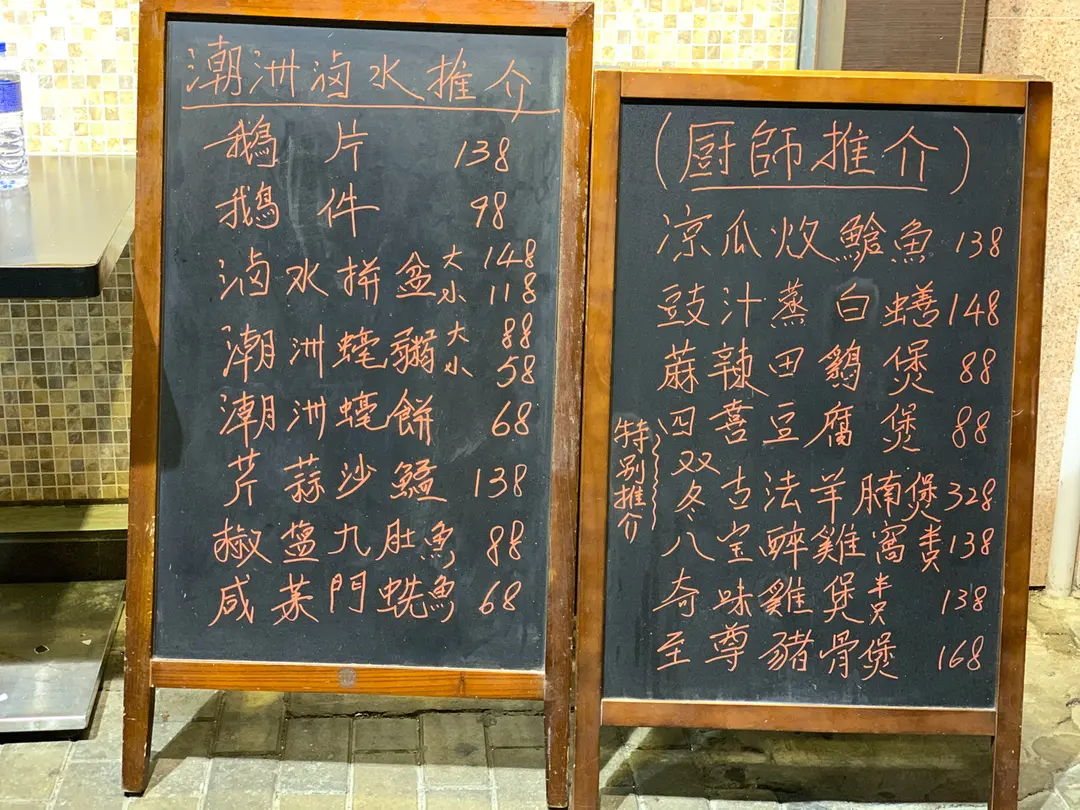 潮洲卤水推介
鵝片 138
鵝件 98
卤水拼盆 大 148
小 118
潮洲蠔粥 大 88
小 58
潮洲蠔餅 68
芹蒜沙鯭 138
椒盬九肚魚 88
咸菜門魚 68
(厨師推介)
凉瓜炆魚 138
豉汁蒸白蟮 148
蔴辣田鷄煲 88
四喜豆腐煲 88
特别推介
双冬古法羊腩煲 328
八宝醉雞窩 半只 138
奇味雞煲 半只 138
至尊豬骨煲 168